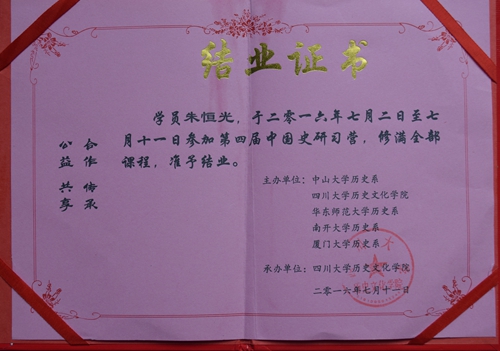 结业证书
学员朱恒光，于二零一六年七月二日至七
月十一日参加第四届中国史研习营，修满全部
课程，准予结业。
公益共享
合作传承
主办单位：中山大学历史系
四川大学历史文化学院
华东师范大学历史系
南开大学历史系
厦门大学历史系
承办单位：四川大学历史文化学院
二零一六年七月十一日